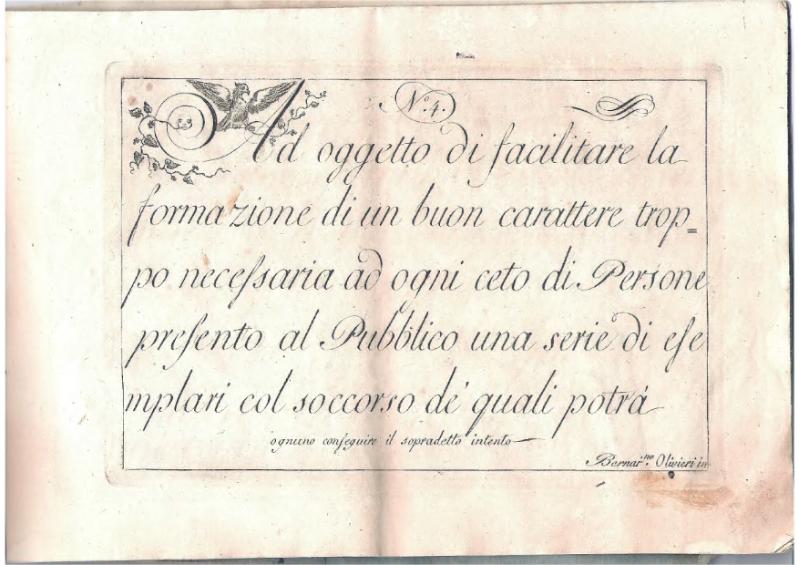 N.º 4.
Ad oggetto di facilitare la
formazione di un buon carattere trop=
po neceſsaria ad ogni ceto di Persone
preſento al Pubblico una serie di eſe
mplari col soccorso de' quali potrà
ognuno conſeguire il sopradetto intento
Bernar.no Olivieri in